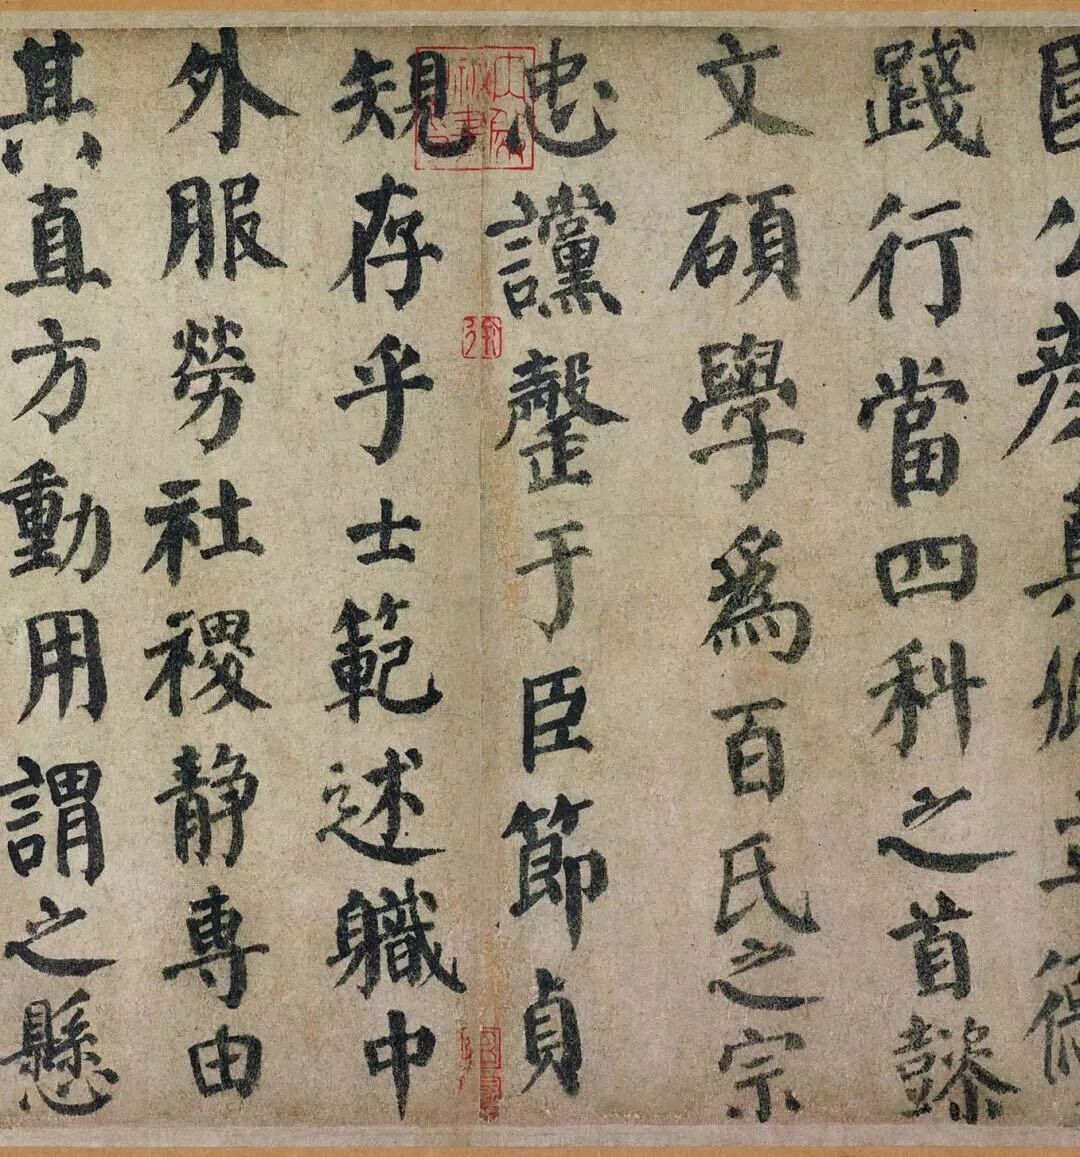 國公顔真卿立德
踐行當四科之首懿
文碩學爲百氏之宗
忠讜罄于臣節貞
規存乎士範述職中
外服勞社稷静專由
其直方動用謂之懸